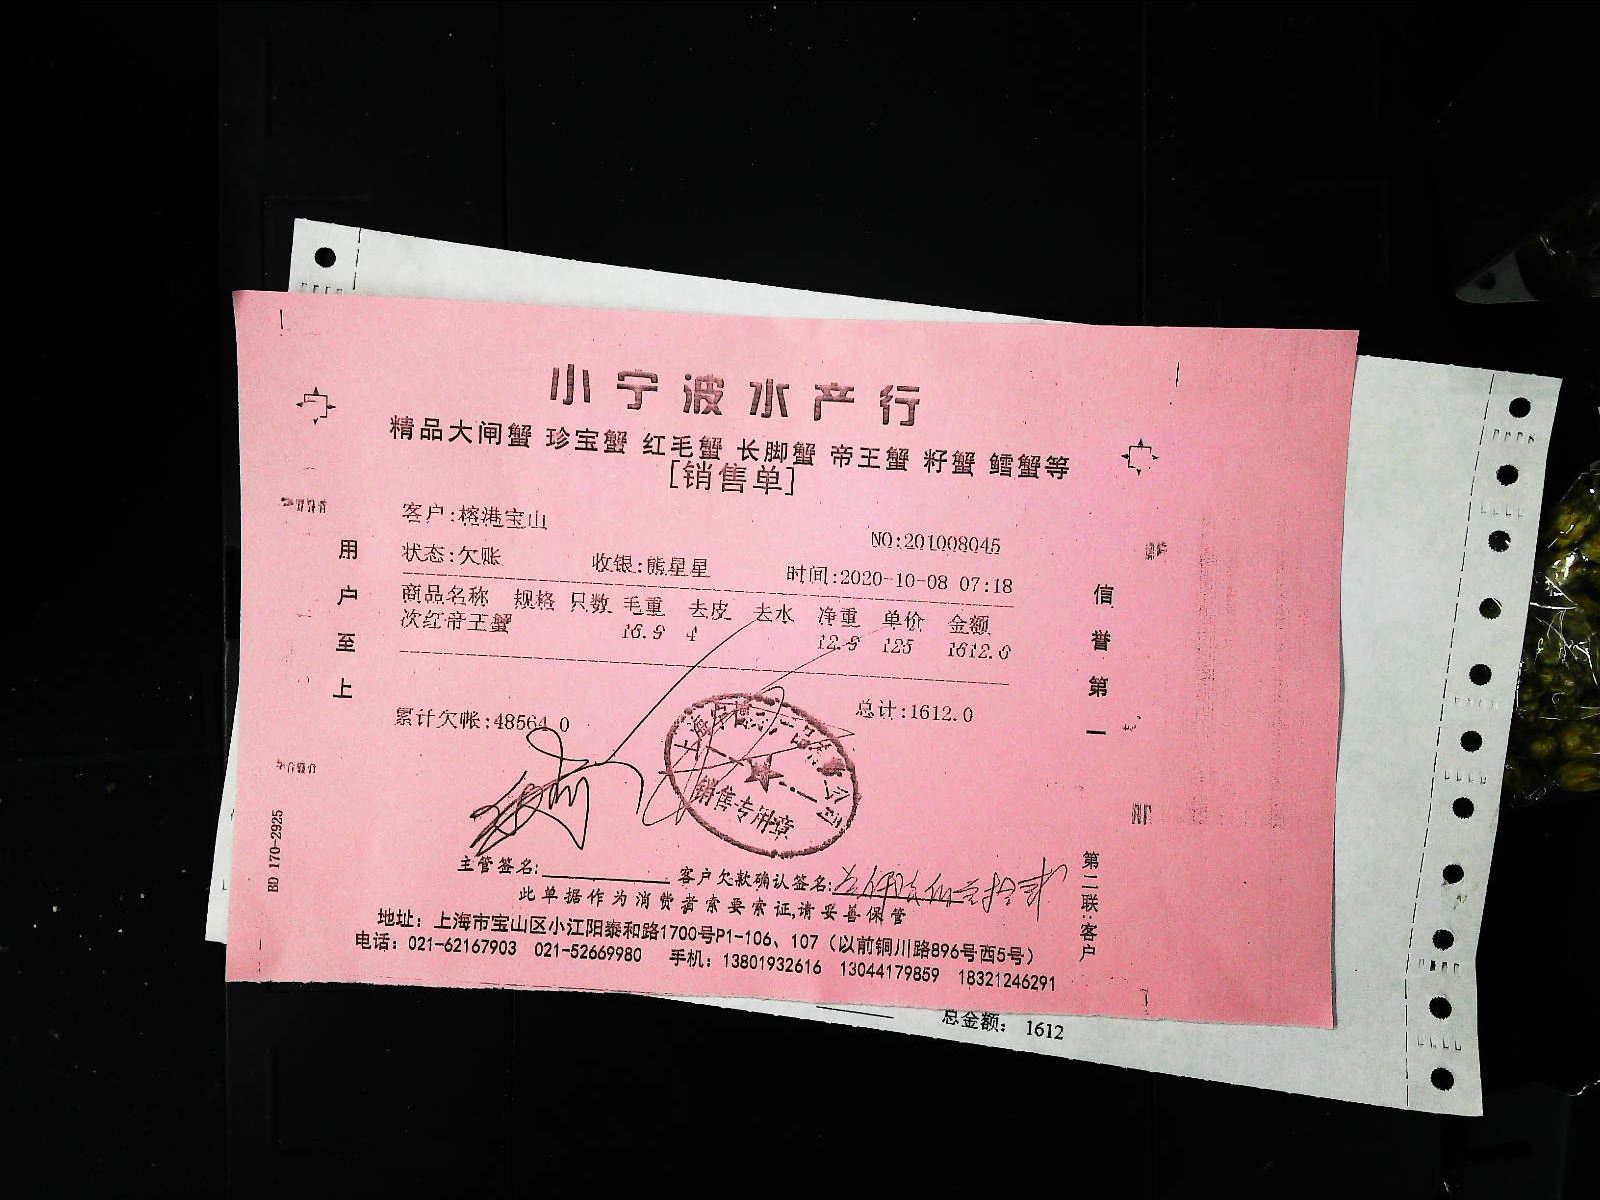 小宁波水产行
精品大闸蟹 珍宝蟹 红毛蟹 长脚蟹 帝王蟹 籽蟹 鳕蟹等
[销售单]
客户:榕港宝山
NO:201008045
状态:欠账 收银:熊星星 时间:2020-10-08 07:18
商品名称 规格 只数 毛重 去皮 去水 净重 单价 金额
次红帝王蟹 16.9 4 12.9 125 1612.0
累计欠帐:48564.0 总计:1612.0
销售专用章
主管签名: 客户欠款确认签名:
此单据作为消费者索要索证,请妥善保管
地址：上海市宝山区小江阳泰和路1700号P1-106、107（以前铜川路896号西5号）
电话：021-62167903 021-52669980 手机：13801932616 13044179859 18321246291
用户至上
信誉第一
第二联:客户
BD 170-2925
总金额： 1612